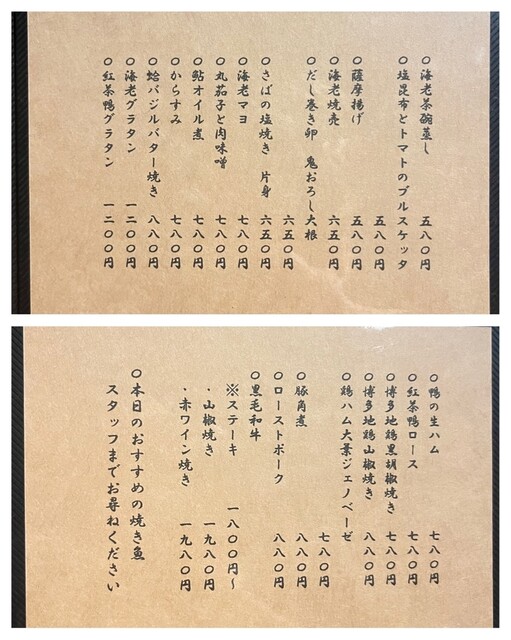 〇海老茶碗蒸し 五八〇円
〇塩昆布とトマトのブルスケッタ
五八〇円
〇薩摩揚げ 五八〇円
〇海老焼売 六五〇円
〇だし巻き卵 鬼おろし大根
六五〇円
〇さばの塩焼き 片身 六五〇円
〇海老マヨ 七八〇円
〇丸茄子と肉味噌 七八〇円
〇鮎オイル煮 七八〇円
〇からすみ 七八〇円
〇蛤バジルバター焼き 八八〇円
〇海老グラタン 一二〇〇円
〇紅茶鴨グラタン 一二〇〇円
〇鴨の生ハム 七八〇円
〇紅茶鴨ロース 七八〇円
〇博多地鶏黒胡椒焼き 八八〇円
〇博多地鶏山椒焼き 八八〇円
〇鶏ハム大葉ジェノベーゼ
七八〇円
〇豚角煮 八八〇円
〇ローストポーク 八八〇円
〇黒毛和牛
※ステーキ 一八〇〇円～
・山椒焼き 一九八〇円
・赤ワイン焼き 一九八〇円
〇本日のおすすめの焼き魚
スタッフまでお尋ねください